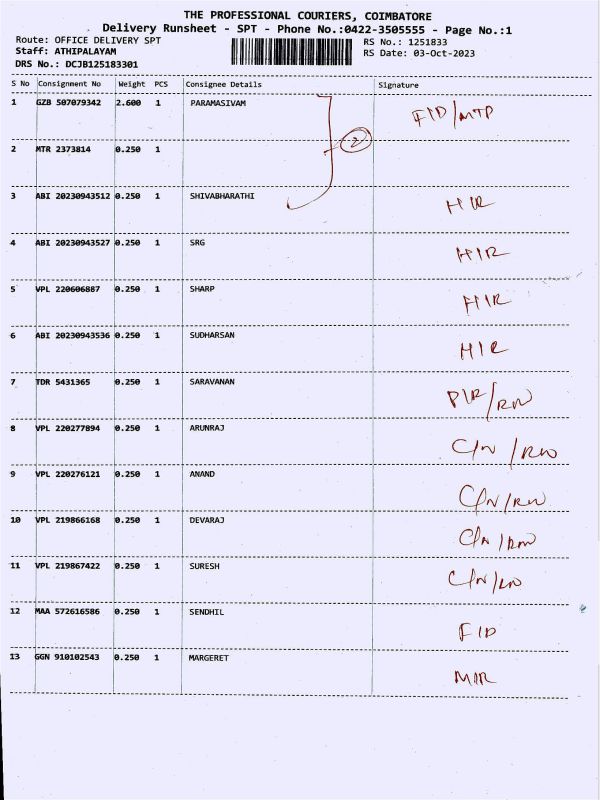 THE PROFESSIONAL COURIERS, COIMBATORE
Delivery Runsheet - SPT - Phone No.:0422-3505555 - Page No.:1
Route: OFFICE DELIVERY SPT RS No.: 1251833
Staff: ATHIPALAYAM RS Date: 03-Oct-2023
DRS No.: DCJB125183301
S No Consignment No Weight PCS Consignee Details Signature
1 GZB 507079342 2.600 1 PARAMASIVAM FID/MTP
2 MTR 2373814 0.250 1 2
3 ABI 20230943512 0.250 1 SHIVABHARATHI HIR
4 ABI 20230943527 0.250 1 SRG HIR
5 VPL 220606887 0.250 1 SHARP HIR
6 ABI 20230943536 0.250 1 SUDHARSAN HIR
7 TDR 5431365 0.250 1 SARAVANAN PIR/RW
8 VPL 220277894 0.250 1 ARUNRAJ C/N/RW
9 VPL 220276121 0.250 1 ANAND C/N/RW
10 VPL 219866168 0.250 1 DEVARAJ C/N/RW
11 VPL 219867422 0.250 1 SURESH C/N/RW
12 MAA 572616586 0.250 1 SENDHIL FID
13 GGN 910102543 0.250 1 MARGERET MIR